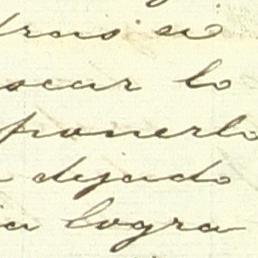 tras si
scar lo
ponerlo
dejado
ia logra